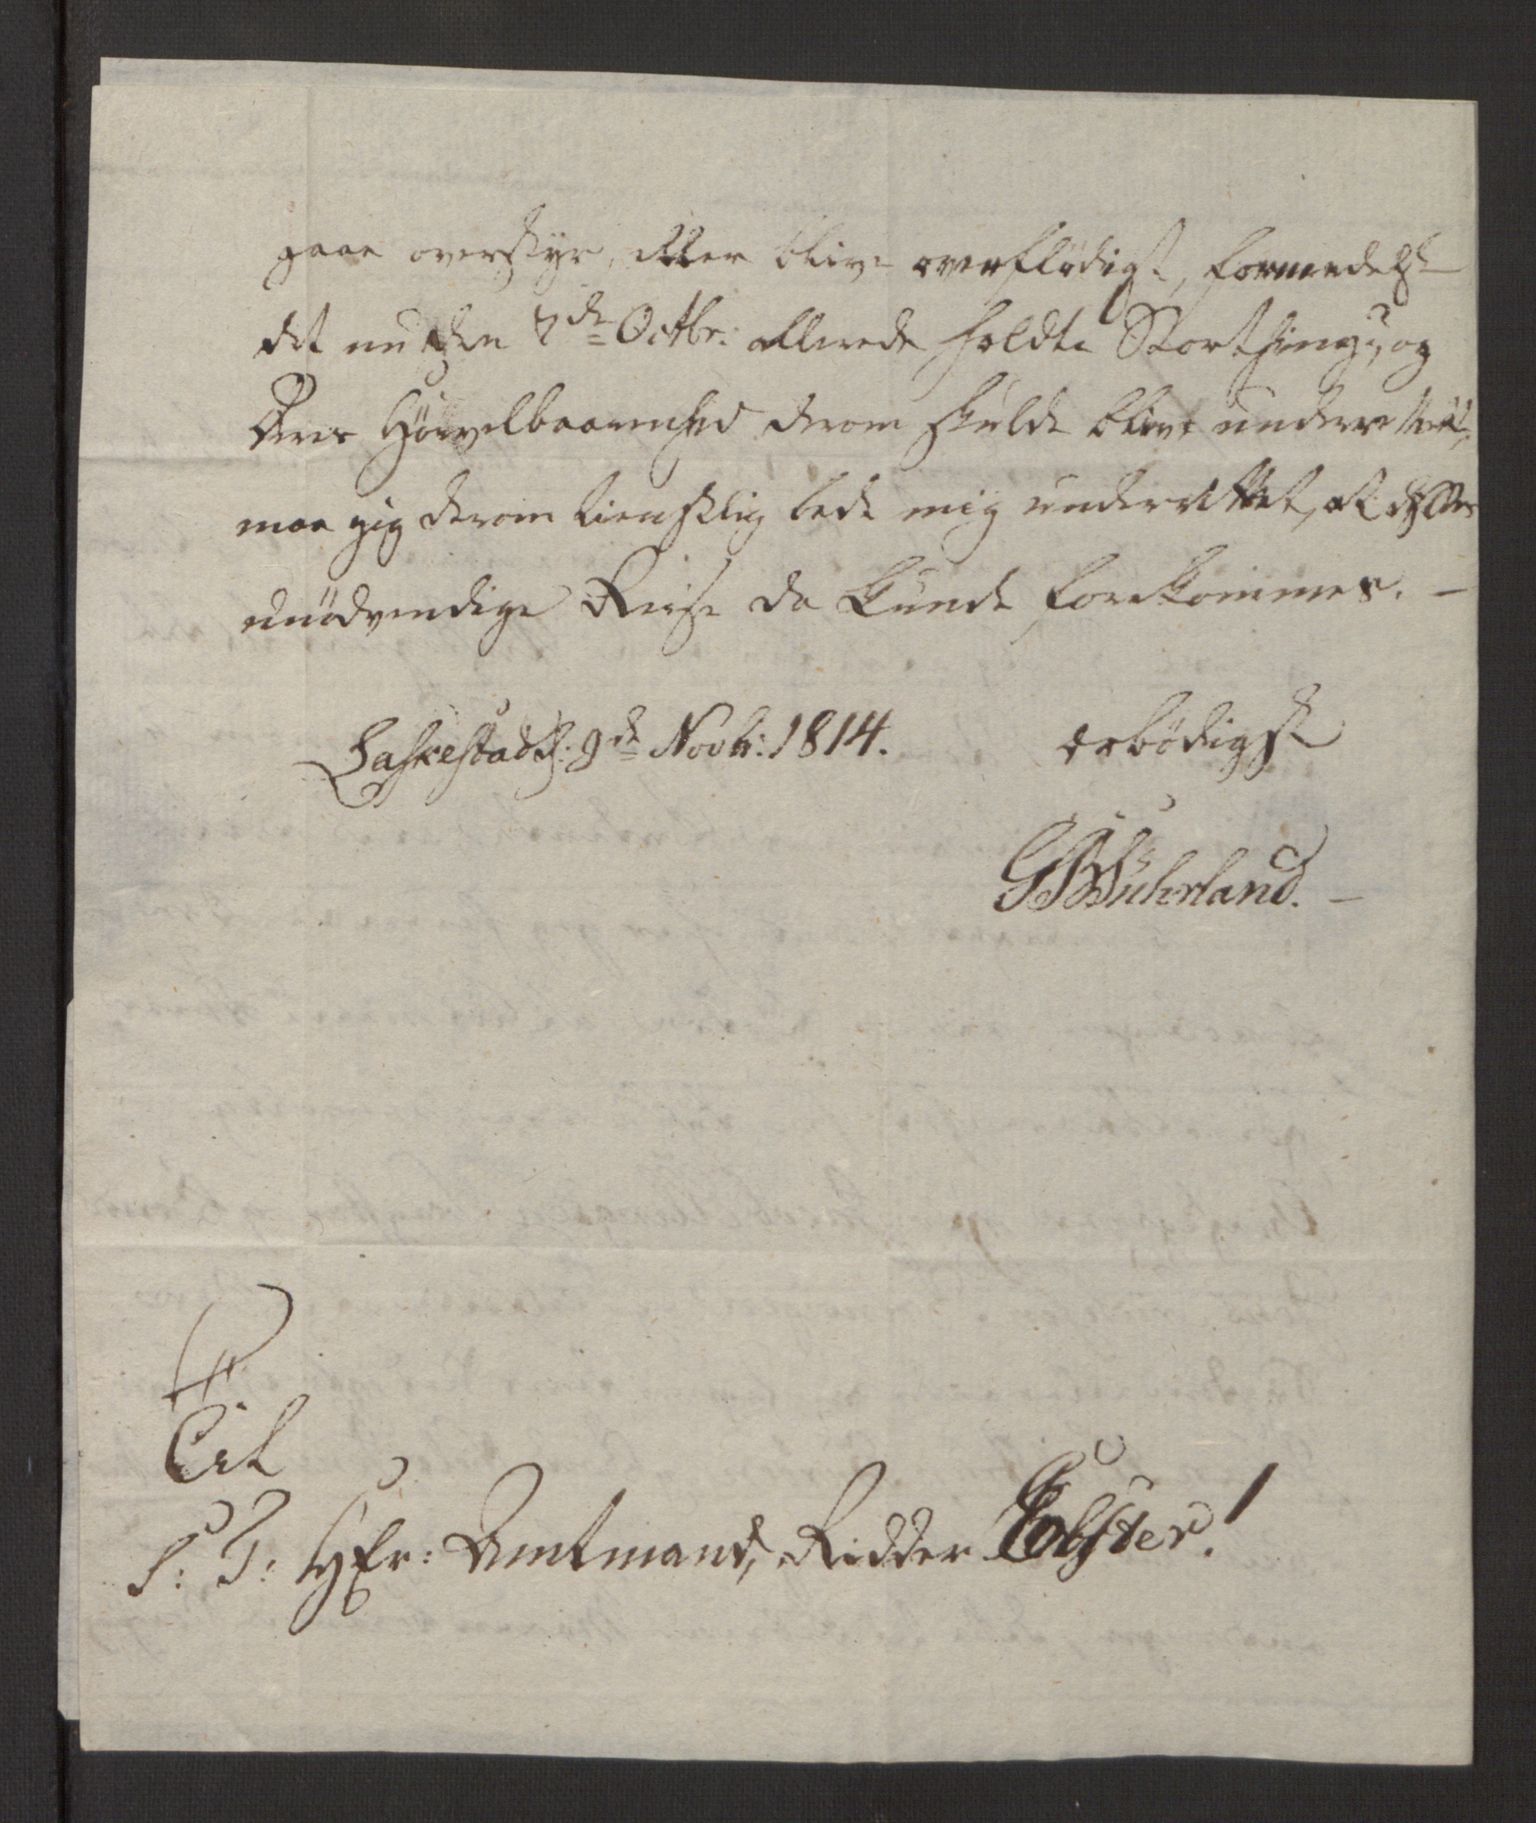 gaae overstyr, eller blive overflødigt, formedelst
det nu den 7de Octbr: allerede holdte Storthing, og
Deres Høivelbaarenhed derom skulde blive underrettet,
maa jeg derom tienstlig bede mig underrettet, at
unødvendige Reise da kunde forekommes. –
Saskestad d: 9de Novbr: 1814.
ærbødigst
G Wuhrland. –
Til
S: T: Hr: Amtmand, Ridder Colster!